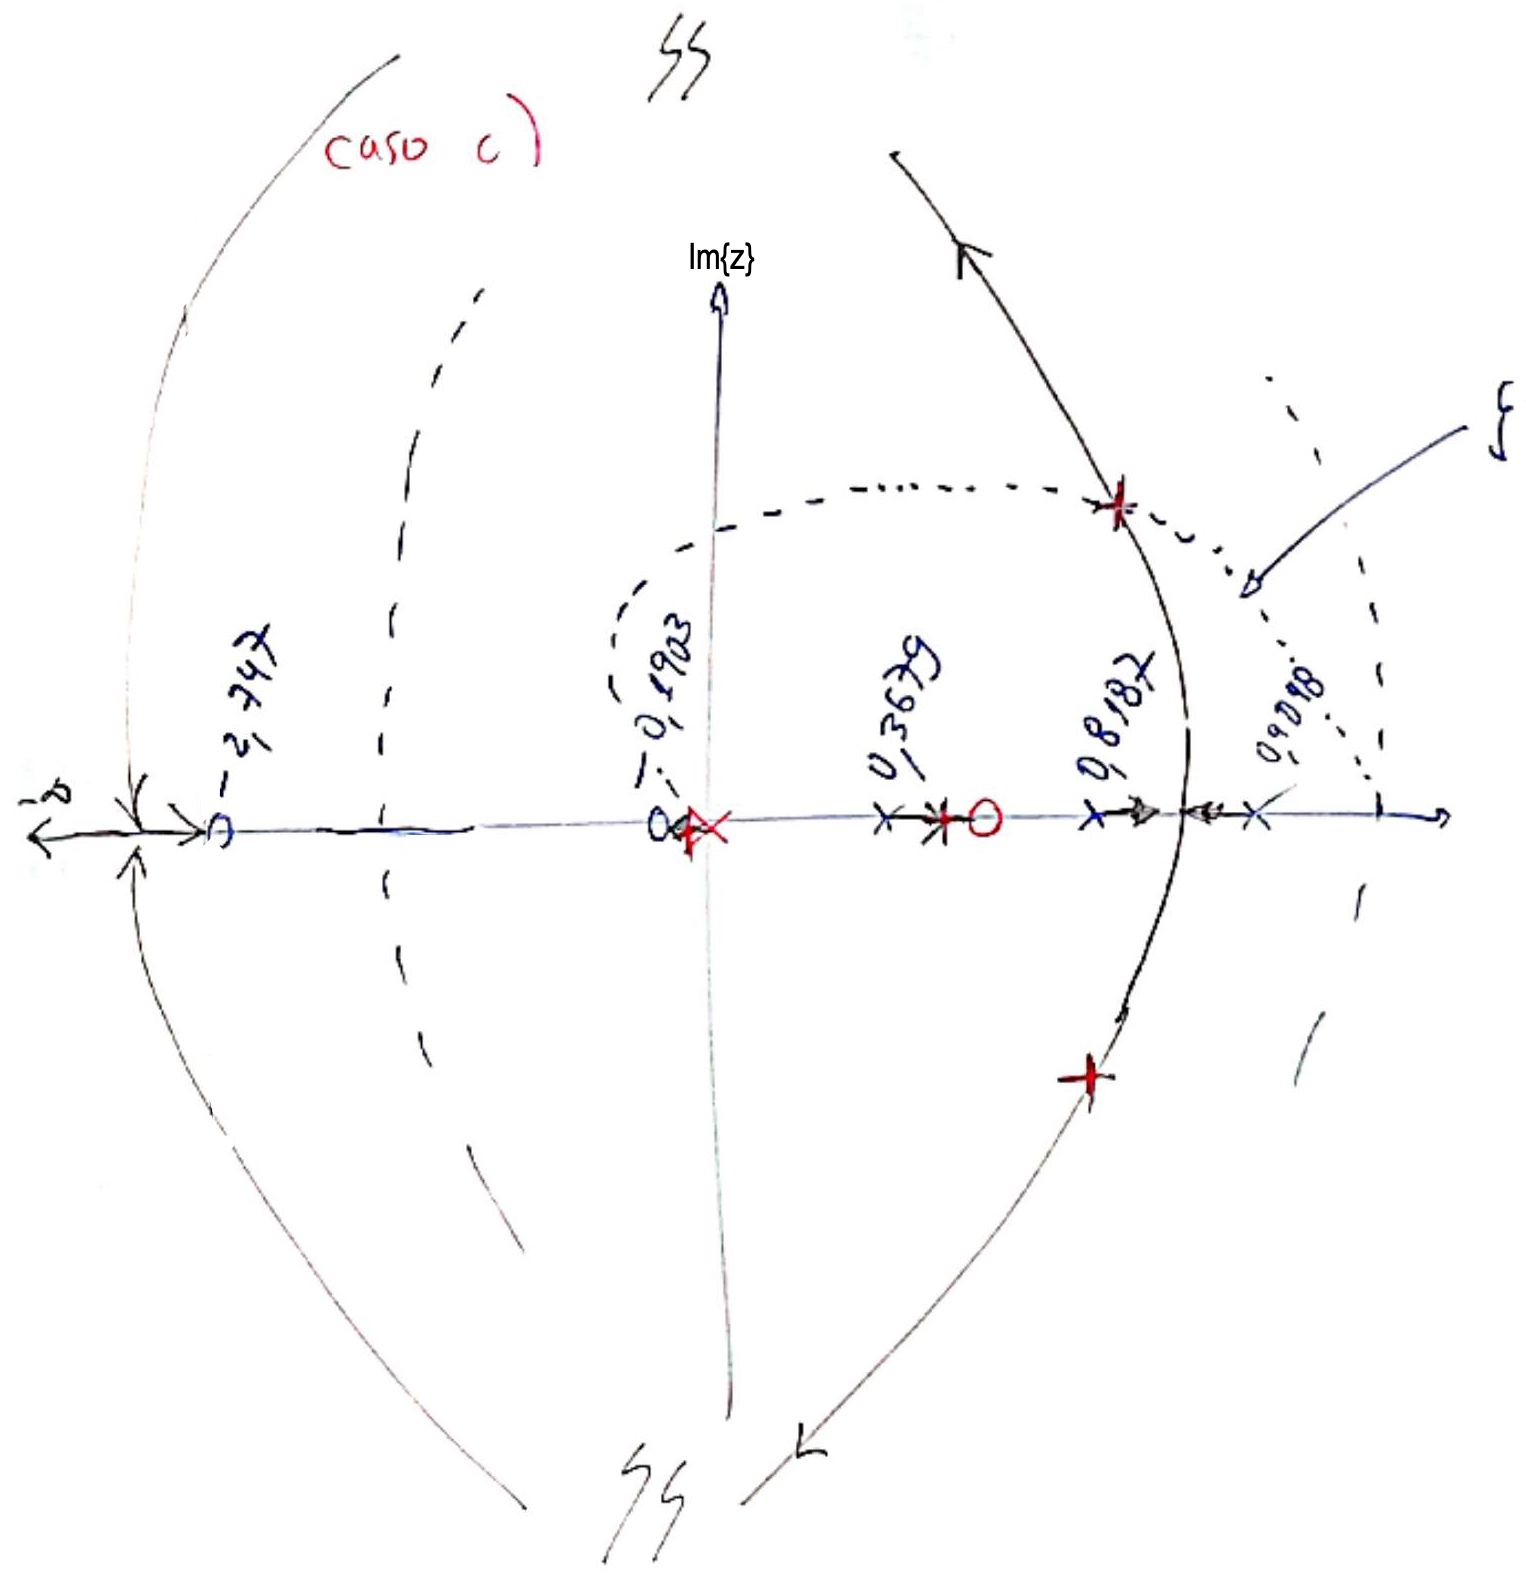 caso c)
Im{z}
-∞
-2,747
-0,1903
0,3679
0,8187
0,9048
ξ